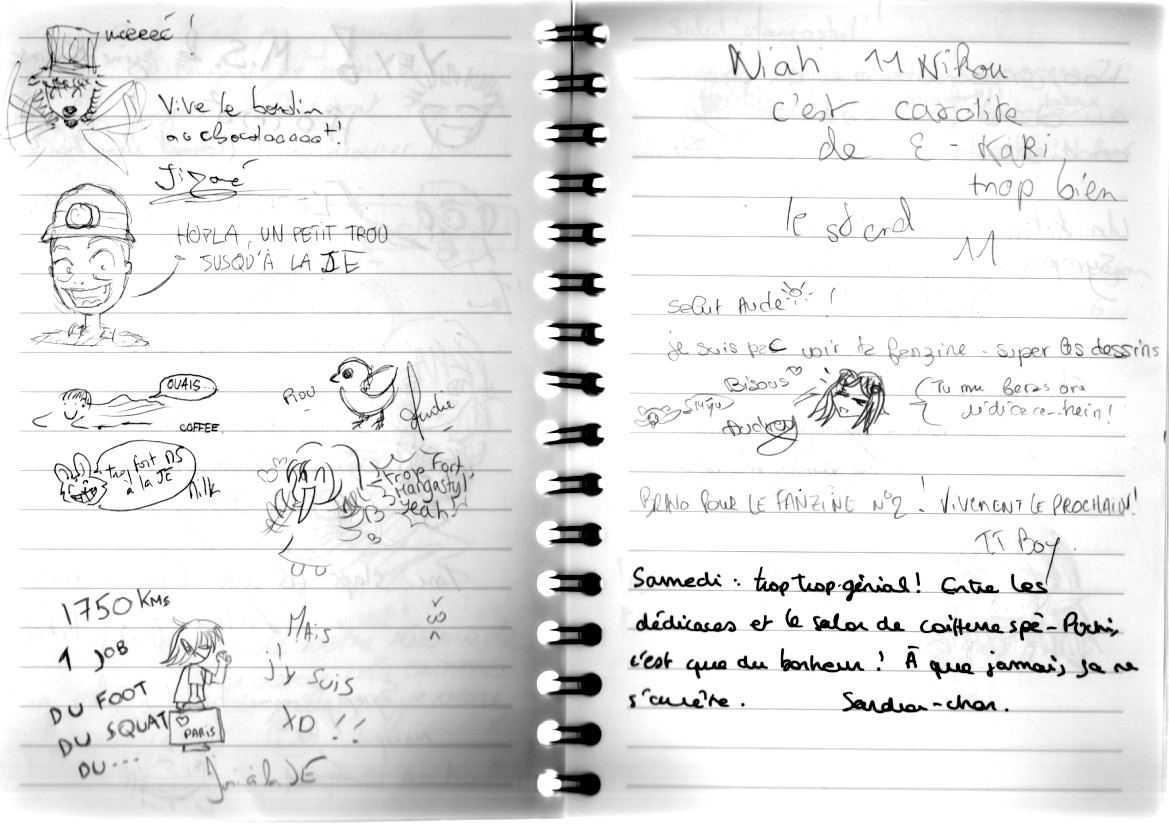 mèèèé !
Vive le boudin
au chocolaaaaat !
Jizoué
HOPLA, UN PETIT TROU
JUSQU'À LA JE
OUAIS...
COFFEE
PIOU
trop fort DS
à la JE
Milk
Trop Fort
Mangastyl'
Yeah!
1750 KMS
1 JOB
DU FOOT
DU SQUAT
DU...
PARIS
MAis
j'y suis
XD !!
à la JE
Niah !! Nikou
c'est carolire
de E-KARI
trop bien
le stand
!!
Salut Aude !
je suis pac voir le fanzine. super les dessins
Bisous
Audrey
Tu me feras une
dédicace hein !
BRAVO POUR LE FANZINE N°2 ! VIVEMENT LE PROCHAIN !
TT Boy.
Samedi : trop trop génial ! Entre les
dédicaces et le salon de coiffure spé-Puchi,
c'est que du bonheur ! À que jamais, ça ne
s'arrête. Sandra-chan.